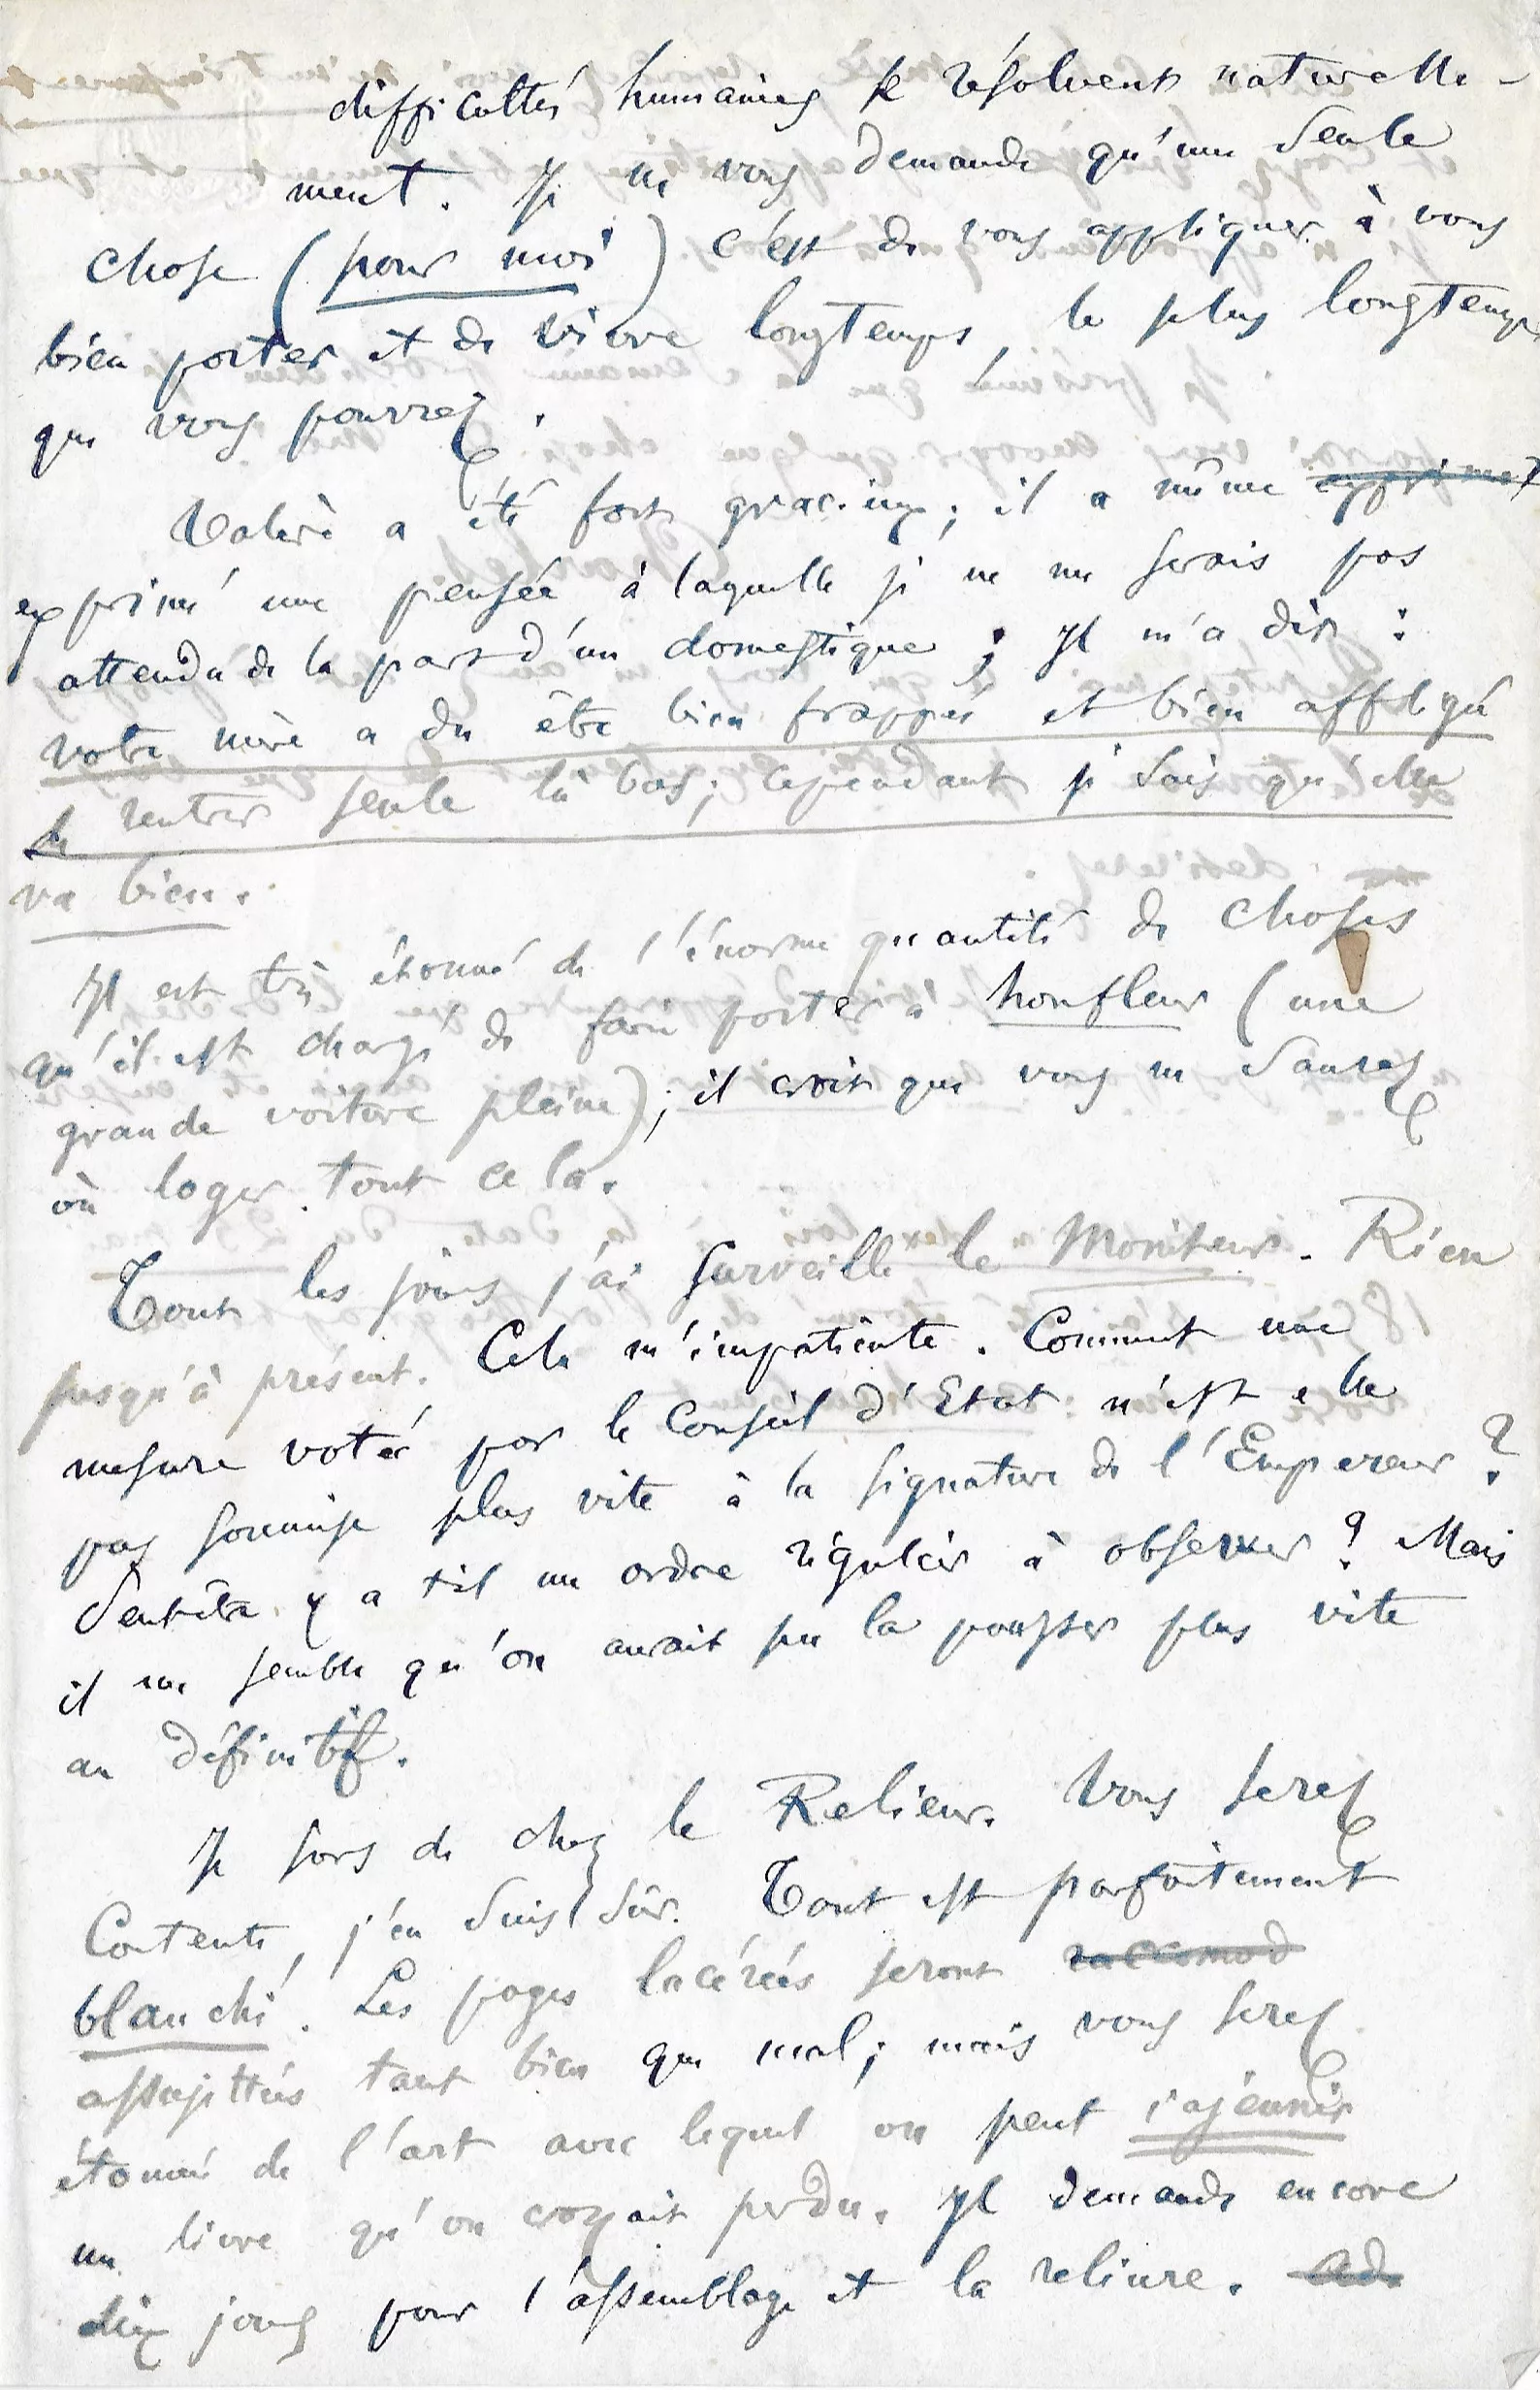 difficultés humaines se résolvent naturelle-
ment. Je ne vous demande qu'une seule
chose (pour moi) c'est de vous appliquer à vous
bien porter et de vivre longtemps, le plus longtemps
que vous pourrez.
Valère a été fort gracieux; il a même exprimé
exprimé une pensée à laquelle je ne me serais pas
attendu de la part d'un domestique; Il m'a dit :
votre mère a du être bien frappée et bien affligée
de rentrer seule là bas; cependant je sais qu'elle
va bien.
Il est très étonné de l'énorme quantité de choses
qu'il est chargé de faire porter à honfleur (une
grande voiture pleine); il croit que vous ne saurez
où loger tout cela.
Tout les jours j'ai surveillé le Moniteur. Rien
jusqu'à présent. Cela m'impatiente. Comment une
mesure votée par le Conseil d'Etat n'est elle
pas soumise plus vite à la signature de l'Empereur ?
Peut-être y a t'il un ordre régulier à observer ? Mais
il me semble qu'on aurait pu la pousser plus vite
au définitif.
Je sors de chez le Relieur. Vous serez
Contente, j'en suis sûr. Tout est parfaitement
blanchi. Les pages lacérées seront raccomod
assujetties tant bien que mal; mais vous serez
étonnée de l'art avec lequel on peut rajeunir
un livre qu'on croyait perdu. Il demande encore
dix jours pour l'assemblage et la reliure.